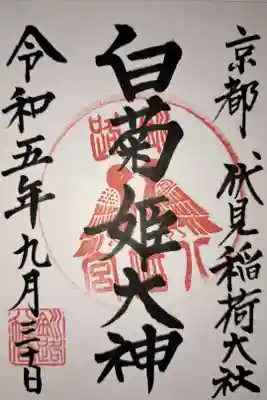 京都 伏見稲荷大社
白菊姫大神
令和五年九月三十日